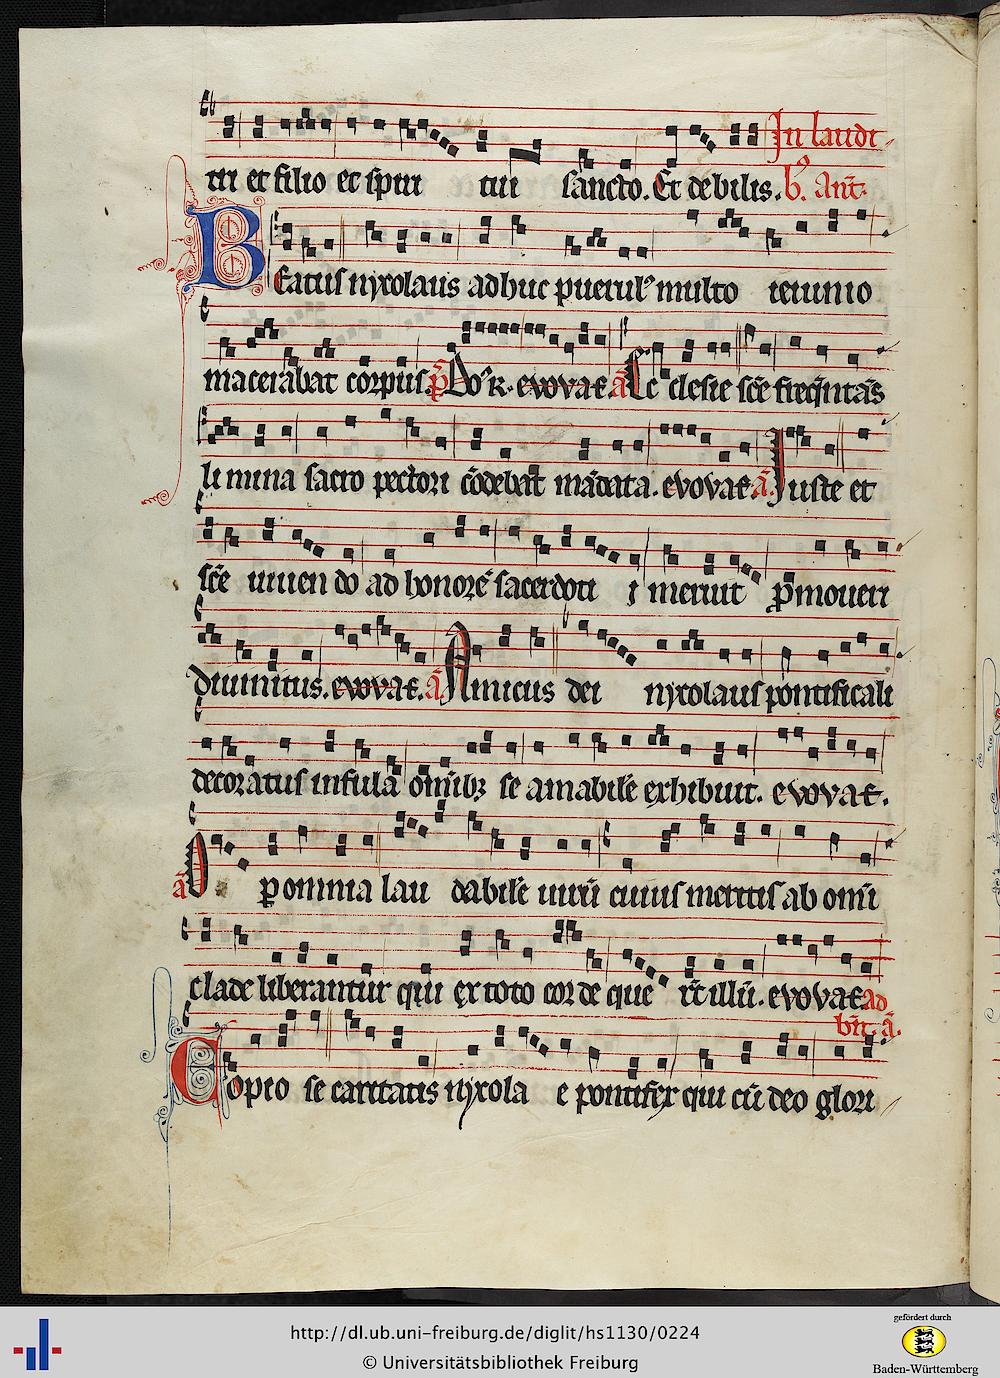 tri et filio et spiri tui sancto. Et debilis. In laudi
b9. Ant.
Eatus nycolaus adhuc puerul9 multo ieiunio
macerabat corpus. p̄ Do9 R. evovae. ā Ec clesie sc̄e freq̄ntās
li mina sacro pectori cōdebat mādata. evovae. ā. Iuste et
sc̄e viven do ad honorē sacerdoti i meruit p̄moveri
divinitus. evovae. ā Amicus dei nycolaus pontificali
decoratus infula om̄ibꝫ se amabilē exhibuit. evovae.
ā O ꝑ omnia lau dabilē virū cuius meritis ab om̄i
clade liberantur qui ex toto corde que rt̄ illū. evovae ad
bn̄. ā.
Copio se caritatis nycola e pontifex qui cū deo glori
http://dl.ub.uni-freiburg.de/diglit/hs1130/0224
© Universitätsbibliothek Freiburg
gefördert durch
Baden-Württemberg